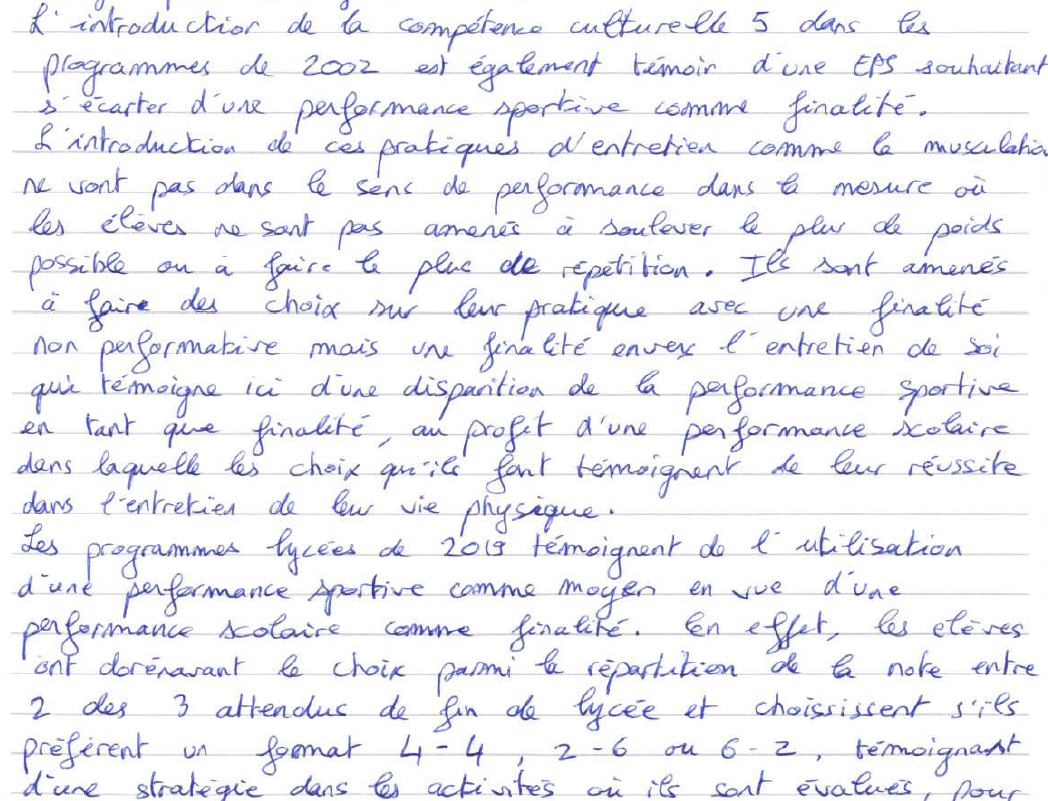 L'introduction de la compétence culturelle 5 dans les
programmes de 2002 est également témoin d'une EPS souhaitant
s'écarter d'une performance sportive comme finalité.
L'introduction de ces pratiques d'entretien comme la musculatio
ne vont pas dans le sens de performance dans la mesure où
les élèves ne sont pas amenés à soulever le plus de poids
possible ou à faire le plus de répétition. Ils sont amenés
à faire des choix sur leur pratique avec une finalité
non performative mais une finalité envers l'entretien de soi
qui témoigne ici d'une disparition de la performance sportive
en tant que finalité, au profit d'une performance scolaire
dans laquelle les choix qu'ils font témoignent de leur réussite
dans l'entretien de leur vie physique.
Les programmes lycées de 2019 témoignent de l'utilisation
d'une performance sportive comme moyen en vue d'une
performance scolaire comme finalité. En effet, les elèves
ont dorénavant le choix parmi la répartition de la note entre
2 des 3 attendus de fin de lycée et choississent s'ils
préfèrent un format 4-4, 2-6 ou 6-2, témoignant
d'une stratégie dans les activités où ils sont évalués, pour